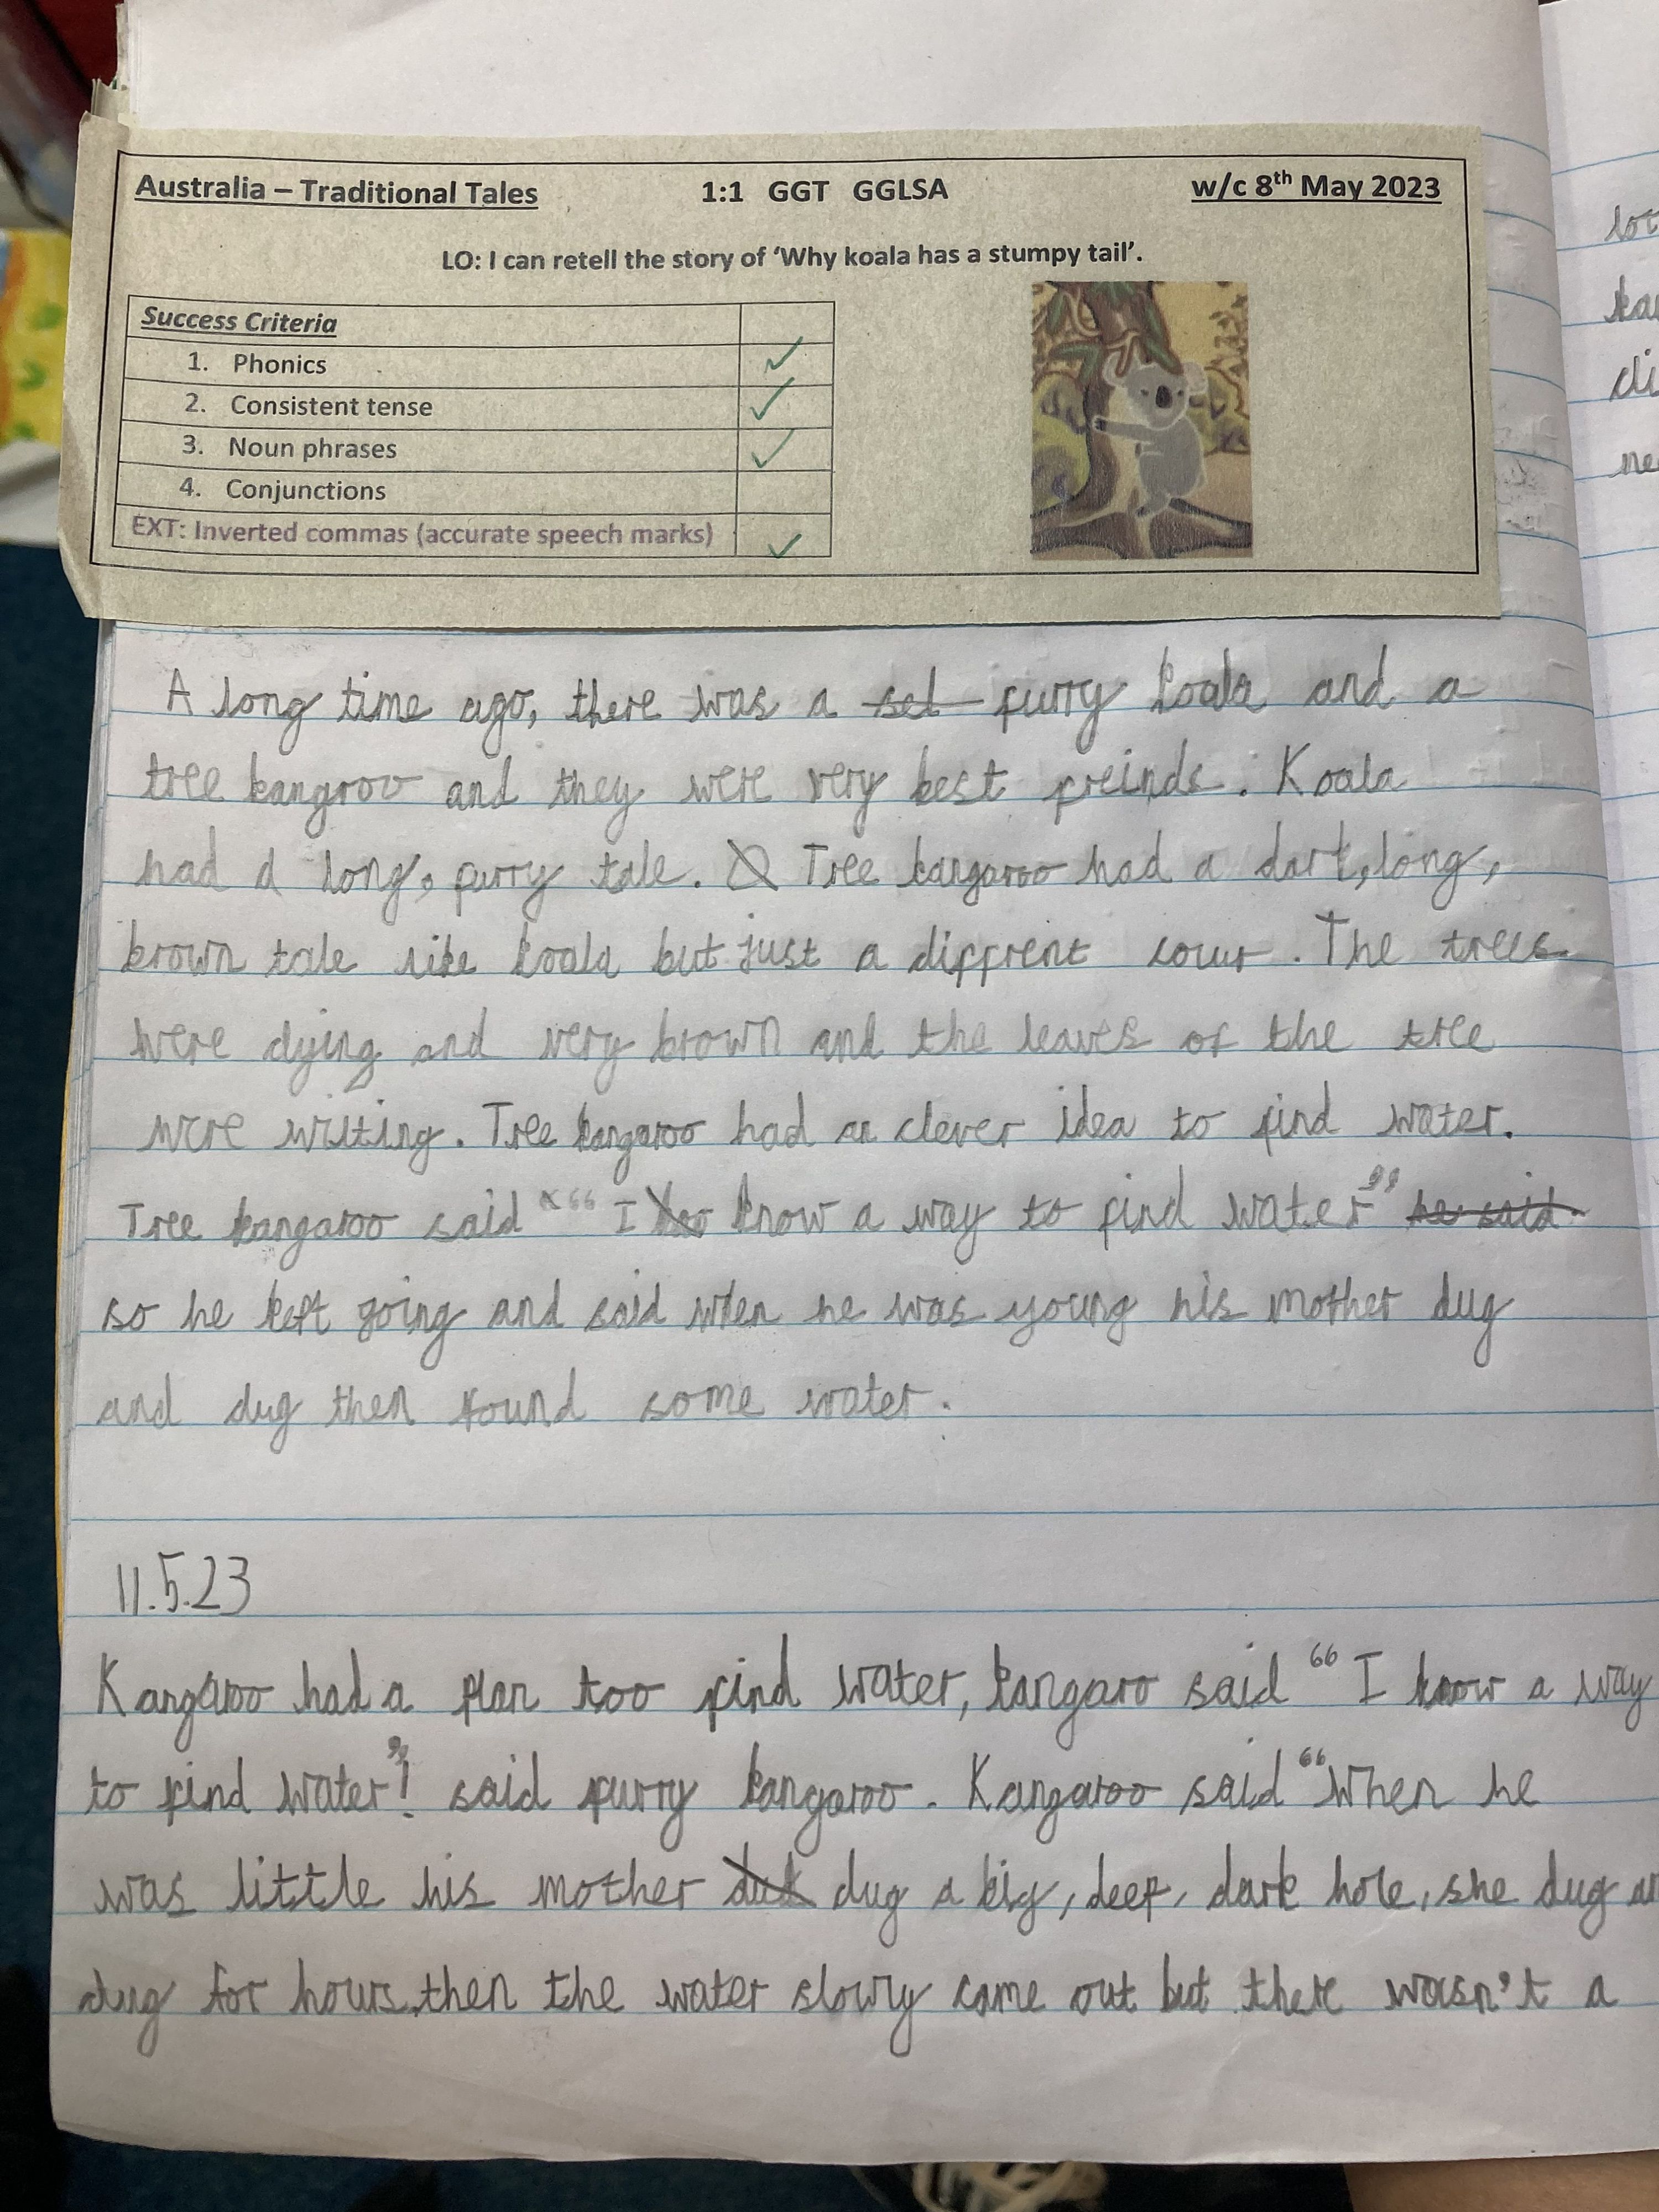 Australia – Traditional Tales 1:1 GGT GGLSA w/c 8th May 2023
LO: I can retell the story of ‘Why koala has a stumpy tail’.
Success Criteria
1. Phonics ✓
2. Consistent tense ✓
3. Noun phrases ✓
4. Conjunctions
EXT: Inverted commas (accurate speech marks) ✓
A long time ago, there was a furry koala and a
tree kangroo and they were very best freinds. Koala
had a long, furry tale. Tree kangaroo had a dark, long,
brown tale like koala but just a diffrent
. The trees
were dying and very brown and the leaves of the tree
were wilting. Tree kangaroo had an clever idea to find water.
Tree kangaroo said “ I know a way to find water” he said.
so he keft going and said when he was young his mother dug
and dug then found some water.
11.5.23
Kangaroo had a plan too find water, kangaro said “ I know a way
to find water”! said furry kangaroo. Kangaroo said “When he
was little his mother dug a big, deep, dark hole, she dug an
dug for hours, then the water slowly came out but there wasn't a